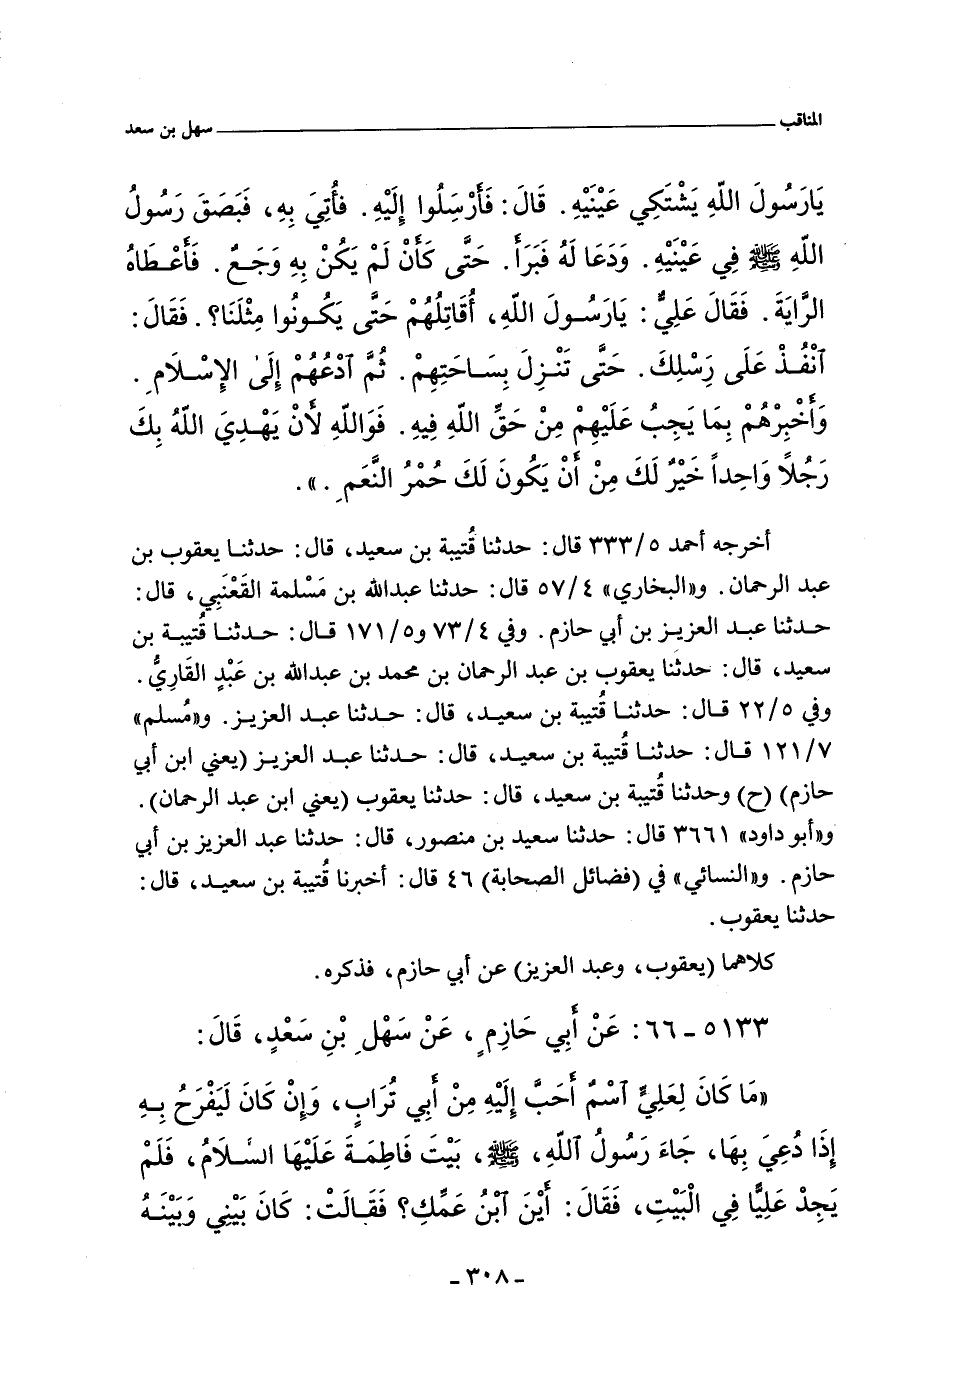 المناقب ــــــ سهل بن سعد
يَارَسُولَ اللّهِ يَشْتَكِي عَيْنَيْهِ. قَالَ: فَأَرْسِلُوا إِلَيْهِ. فأُتِيَ بِهِ، فَبَصَقَ رَسُولُ
اللّهِ ﷺ فِي عَيْنَيْهِ. وَدَعَا لَهُ فَبَرَأَ. حَتَّى كَأَنْ لَمْ يَكُنْ بِهِ وَجَعٌ. فَأَعْطَاهُ
الرَّايَةَ. فَقَالَ عَلِيٌّ: يَارَسُولَ اللّهِ، أُقَاتِلُهُمْ حَتَّى يَكُونُوا مِثْلَنَا؟. فَقَالَ:
ٱنْفُذْ عَلَى رَسْلِكَ. حَتَّى تَنْزِلَ بِسَاحَتِهِمْ. ثُمَّ ٱدْعُهُمْ إِلَىٰ الإِسْلَامِ.
وَأَخْبِرْهُمْ بِمَا يَجِبُ عَلَيْهِمْ مِنْ حَقِّ اللّهِ فِيهِ. فَوَاللّهِ لَأَنْ يَهْدِيَ اللّهُ بِكَ
رَجُلًا وَاحِداً خَيْرٌ لَكَ مِنْ أَنْ يَكُونَ لَكَ حُمْرُ النَّعَمِ.».
أخرجه أحمد ٣٣٣/٥ قال: حدثنا قُتيبة بن سعيد، قال: حدثنا يعقوب بن
عبد الرحمان. و«البخاري» ٥٧/٤ قال: حدثنا عبدالله بن مَسْلمة القَعْنَبِي، قال:
حدثنا عبد العزيز بن أبي حازم. وفي ٧٣/٤ و١٧١/٥ قال: حدثنا قُتيبة بن
سعيد، قال: حدثنا يعقوب بن عبد الرحمان بن محمد بن عبدالله بن عَبْدٍ القَارِيُّ.
وفي ٢٢/٥ قال: حدثنا قُتيبة بن سعيد، قال: حدثنا عبد العزيز. و«مُسلم»
١٢١/٧ قال: حدثنا قُتيبة بن سعيد، قال: حدثنا عبد العزيز (يعني ابن أبي
حازم) (ح) وحدثنا قُتيبة بن سعيد، قال: حدثنا يعقوب (يعني ابن عبد الرحمان).
و«أبو داود» ٣٦٦١ قال: حدثنا سعيد بن منصور، قال: حدثنا عبد العزيز بن أبي
حازم. و«النسائي» في (فضائل الصحابة) ٤٦ قال: أخبرنا قُتيبة بن سعيد، قال:
حدثنا يعقوب.
كلاهما (يعقوب، وعبد العزيز) عن أبي حازم، فذكره.
٥١٣٣ ـ ٦٦: عَنْ أَبِي حَازِمٍ، عَنْ سَهْلِ بْنِ سَعْدٍ، قَالَ:
«مَا كَانَ لِعَلِيٍّ ٱسْمٌ أَحَبَّ إِلَيْهِ مِنْ أَبِي تُرَابٍ، وَإِنْ كَانَ لَيَفْرَحُ بِهِ
إِذَا دُعِيَ بِهَا، جَاءَ رَسُولُ ٱللّهِ، ﷺ، بَيْتَ فَاطِمَةَ عَلَيْهَا السَّلَامُ، فَلَمْ
يَجِدْ عَلِيًّا فِي الْبَيْتِ، فَقَالَ: أَيْنَ ٱبْنُ عَمِّكِ؟ فَقَالَتْ: كَانَ بَيْنِي وَبَيْنَهُ
ـ ٣٠٨ ـ